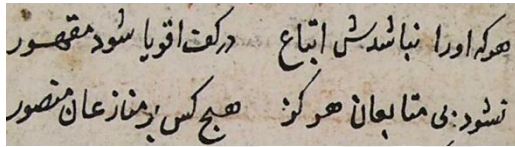 هر که او را نباشدش اتباع در کف اقویا شود مقهور
نشود بی متابعان هرگز هیچ کس بر منازعان منصور